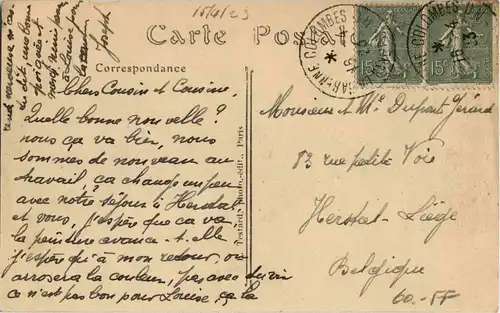 15/4/23
Carte Postale
Correspondance
Chers Cousin et Cousine,
Quelle bonne nouvelle?
nous ça va bien, nous
sommes de nouveau au
travail, ça change un peu
avec notre séjour à Herstal
et vous, j'espère que ça va
la peinture avance-t-elle
j'espère qu'à mon retour, on
arrosera la couleur, pas avec du vin
ça n'est pas bon pour Louise, ça la
rend nerveuse
bonne
Louise
Joseph
Testard, photo.-édit., Paris
LA GARENNE COLOMBES
15c
15c
Monsieur et Me Dupont Gérard
83 rue petite Voie
Herstal-Liége
Belgique
60.-FF